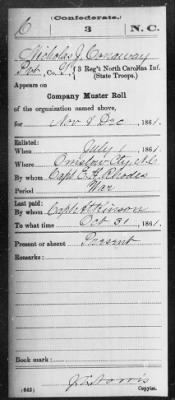 (Confederate.)
C 3 N. C.
Nicholas J. Conaway
Pvt, Co. G, 3 Reg't North Carolina Inf.
(State Troops.)
Appears on
Company Muster Roll
of the organization named above,
for Nov & Dec, 1861.
Enlisted:
When July 1, 1861.
Where Onslow Cty, N.C.
By whom Capt E. H. Rhodes
Period War
Last paid:
By whom Capt Atkinson
To what time Oct 31, 1861.
Present or absent Present
Remarks:
Book mark:
(642) Copyist.